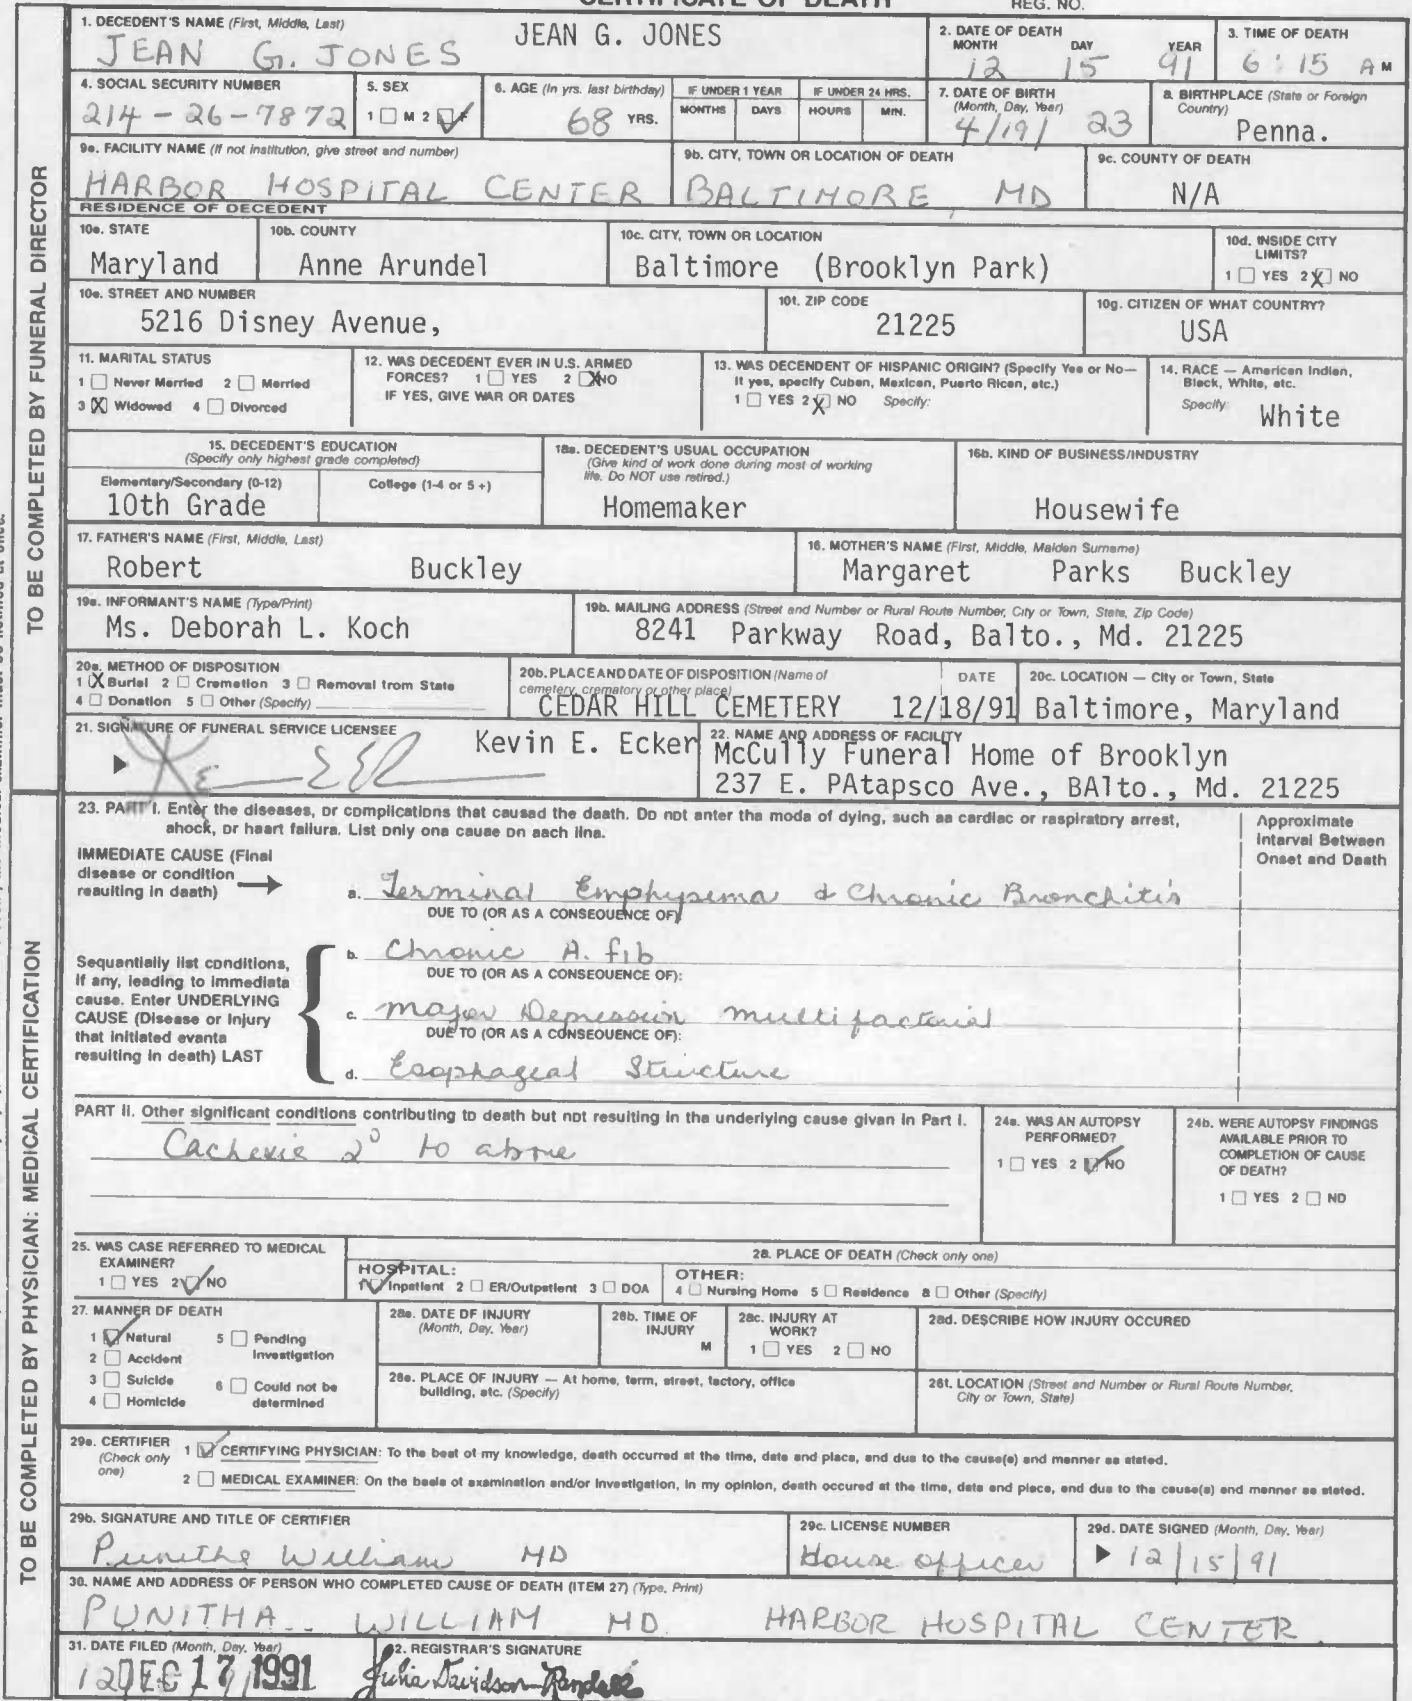 CERTIFICATE OF DEATH
REG. NO.
TO BE COMPLETED BY FUNERAL DIRECTOR
1. DECEDENT'S NAME (First, Middle, Last)
JEAN G. JONES
JEAN G. JONES
2. DATE OF DEATH
MONTH DAY YEAR
12 15 91
3. TIME OF DEATH
6:15 A M
4. SOCIAL SECURITY NUMBER
214-26-7872
5. SEX
1 M 2 F
6. AGE (In yrs. last birthday)
68 YRS.
IF UNDER 1 YEAR
MONTHS DAYS
IF UNDER 24 HRS.
HOURS MIN.
7. DATE OF BIRTH
(Month, Day, Year)
4/19/ 23
8. BIRTHPLACE (State or Foreign
Country)
Penna.
9a. FACILITY NAME (If not institution, give street and number)
HARBOR HOSPITAL CENTER
9b. CITY, TOWN OR LOCATION OF DEATH
BALTIMORE, MD
9c. COUNTY OF DEATH
N/A
RESIDENCE OF DECEDENT
10a. STATE
Maryland
10b. COUNTY
Anne Arundel
10c. CITY, TOWN OR LOCATION
Baltimore (Brooklyn Park)
10d. INSIDE CITY
LIMITS?
1 YES 2 X NO
10e. STREET AND NUMBER
5216 Disney Avenue,
10f. ZIP CODE
21225
10g. CITIZEN OF WHAT COUNTRY?
USA
11. MARITAL STATUS
1 Never Married 2 Married
3 X Widowed 4 Divorced
12. WAS DECEDENT EVER IN U.S. ARMED
FORCES? 1 YES 2 X NO
IF YES, GIVE WAR OR DATES
13. WAS DECENDENT OF HISPANIC ORIGIN? (Specify Yes or No—
If yes, specify Cuban, Mexican, Puerto Rican, etc.)
1 YES 2 X NO Specify:
14. RACE — American Indian,
Black, White, etc.
Specify: White
15. DECEDENT'S EDUCATION
(Specify only highest grade completed)
Elementary/Secondary (0-12)
10th Grade
College (1-4 or 5+)
16a. DECEDENT'S USUAL OCCUPATION
(Give kind of work done during most of working
life. Do NOT use retired.)
Homemaker
16b. KIND OF BUSINESS/INDUSTRY
Housewife
17. FATHER'S NAME (First, Middle, Last)
Robert Buckley
18. MOTHER'S NAME (First, Middle, Maiden Surname)
Margaret Parks Buckley
19a. INFORMANT'S NAME (Type/Print)
Ms. Deborah L. Koch
19b. MAILING ADDRESS (Street and Number or Rural Route Number, City or Town, State, Zip Code)
8241 Parkway Road, Balto., Md. 21225
20a. METHOD OF DISPOSITION
1 X Burial 2 Cremation 3 Removal from State
4 Donation 5 Other (Specify)
20b. PLACE AND DATE OF DISPOSITION (Name of
cemetery, crematory or other place)
DATE
CEDAR HILL CEMETERY 12/18/91
20c. LOCATION — City or Town, State
Baltimore, Maryland
21. SIGNATURE OF FUNERAL SERVICE LICENSEE
Kevin E. Ecker
22. NAME AND ADDRESS OF FACILITY
McCully Funeral Home of Brooklyn
237 E. PAtapsco Ave., BAlto., Md. 21225
TO BE COMPLETED BY PHYSICIAN: MEDICAL CERTIFICATION
23. PART I. Enter the diseases, or complications that caused the death. Do not enter the mode of dying, such as cardiac or respiratory arrest,
shock, or heart failure. List only one cause on each line.
Approximate
Interval Between
Onset and Death
IMMEDIATE CAUSE (Final
disease or condition
resulting in death)
a. Terminal Emphysema & Chronic Bronchitis
DUE TO (OR AS A CONSEQUENCE OF):
Sequentially list conditions,
if any, leading to immediate
cause. Enter UNDERLYING
CAUSE (Disease or injury
that initiated events
resulting in death) LAST
b. Chronic A. fib
DUE TO (OR AS A CONSEQUENCE OF):
c. Major Depression multifactorial
DUE TO (OR AS A CONSEQUENCE OF):
d. Esophageal Structure
PART II. Other significant conditions contributing to death but not resulting in the underlying cause given in Part I.
Cachexie 2° to above
24a. WAS AN AUTOPSY
PERFORMED?
1 YES 2 NO
24b. WERE AUTOPSY FINDINGS
AVAILABLE PRIOR TO
COMPLETION OF CAUSE
OF DEATH?
1 YES 2 NO
25. WAS CASE REFERRED TO MEDICAL
EXAMINER?
1 YES 2 NO
26. PLACE OF DEATH (Check only one)
HOSPITAL:
1 Inpatient 2 ER/Outpatient 3 DOA
OTHER:
4 Nursing Home 5 Residence 6 Other (Specify)
27. MANNER OF DEATH
1 Natural 5 Pending
Investigation
2 Accident
3 Suicide 6 Could not be
determined
4 Homicide
28a. DATE OF INJURY
(Month, Day, Year)
28b. TIME OF
INJURY
M
28c. INJURY AT
WORK?
1 YES 2 NO
28d. DESCRIBE HOW INJURY OCCURED
28e. PLACE OF INJURY — At home, farm, street, factory, office
building, etc. (Specify)
28f. LOCATION (Street and Number or Rural Route Number,
City or Town, State)
29a. CERTIFIER
(Check only
one)
1 CERTIFYING PHYSICIAN: To the best of my knowledge, death occurred at the time, date and place, and due to the cause(s) and manner as stated.
2 MEDICAL EXAMINER: On the basis of examination and/or investigation, in my opinion, death occured at the time, date and place, and due to the cause(s) and manner as stated.
29b. SIGNATURE AND TITLE OF CERTIFIER
Punitha William MD
29c. LICENSE NUMBER
House officer
29d. DATE SIGNED (Month, Day, Year)
12/15/91
30. NAME AND ADDRESS OF PERSON WHO COMPLETED CAUSE OF DEATH (ITEM 27) (Type, Print)
PUNITHA WILLIAM MD HARBOR HOSPITAL CENTER.
31. DATE FILED (Month, Day, Year)
DEC 17 1991
32. REGISTRAR'S SIGNATURE
Julia Davidson-Randall